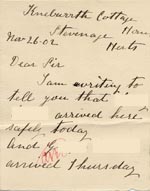 Knebworth Cottage
Stevenage
Herts
Nov 26·02
Dear Sir
I am writing to
tell you that
arrived here
safely today
and
arrived Thursday